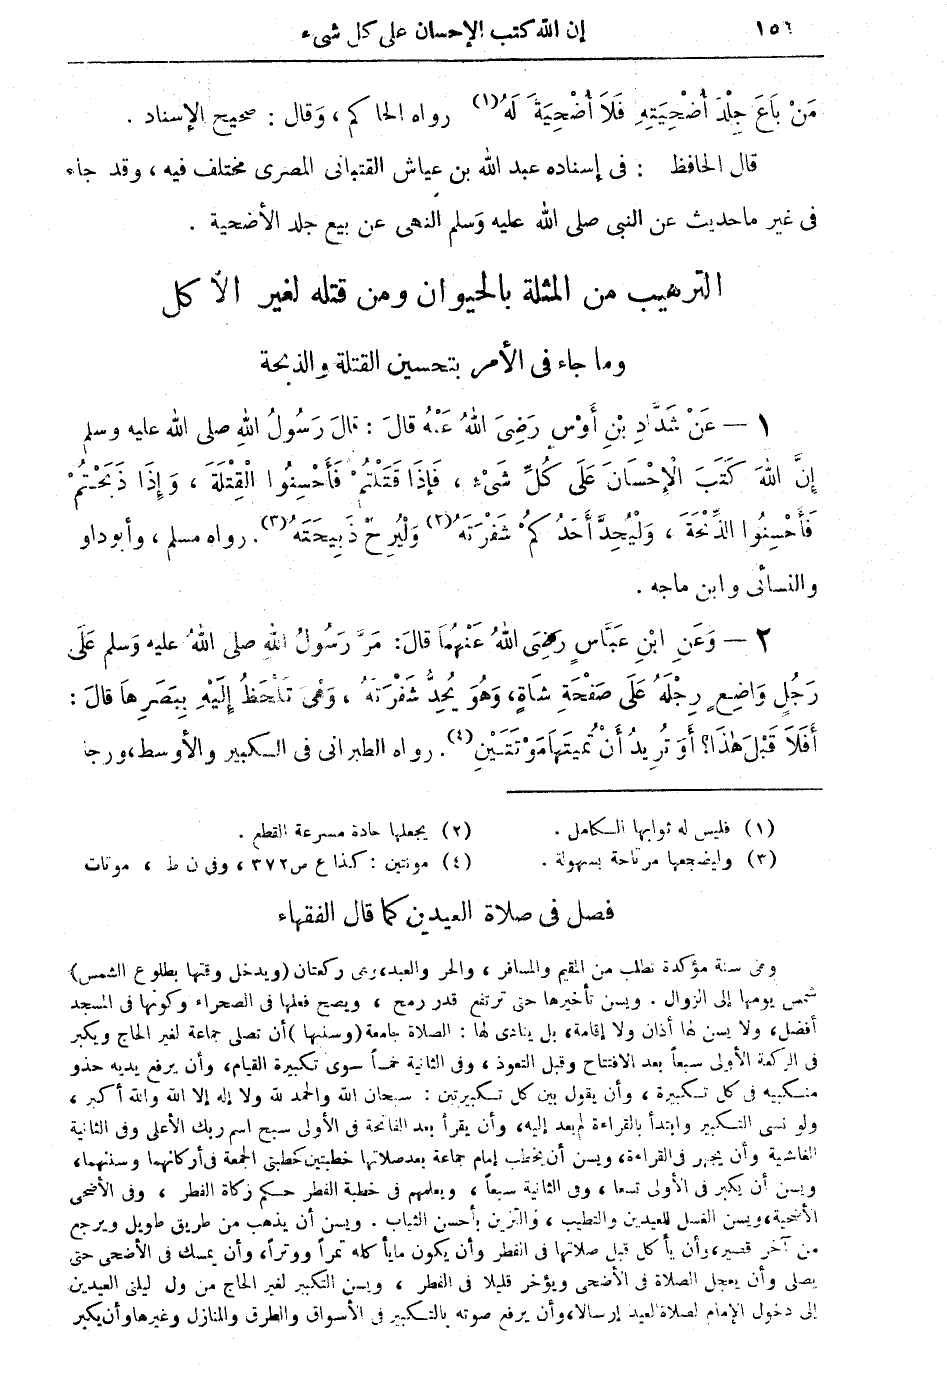 ١٥٦ إن الله كتب الإحسان على كل شىء
مَنْ بَاعَ جِلْدَ أُضْحِيَتِهِ فَلَا أُضْحِيَةَ لَهُ (١) رواه الحاكم ، وَقال : صحيح الإسناد .
قال الحافظ : فى إسناده عبد الله بن عياش القتبانى المصرى مختلف فيه ، وقد جاء
فى غير ماحديث عن النبى صلى الله عليه وَسلم النهى عن بيع جلد الأضحية .
الترهيب من المثلة بالحيوان ومن قتله لغير الأكل
وما جاء فى الأمر بتحسين القتلة والذبحة
١ — عَنْ شَدَّادِ بْنِ أَوْسٍ رَضِىَ اللهُ عَنْهُ قالَ : قالَ رَسُولُ اللهِ صلى الله عليه وسلم
إِنَّ اللهَ كَتَبَ الْإِحْسَانَ عَلَى كُلِّ شَىْءٍ ، فَإِذَا قَتَلْتُمْ فَأَحْسِنُوا الْقِتْلَةَ ، وَإِذَا ذَبَحْتُمْ
فَأَحْسِنُوا الذِّبْحَةَ ، وَلْيُحِدَّ أَحَدُكُمْ شَفْرَتَهُ (٢) وَلْيُرِحْ ذَبِيحَتَهُ (٣). رواه مسلم ، وأبوداو
والنسائى وابن ماجه .
٢ — وَعَنِ ابْنِ عَبَّاسٍ رضِىَ اللهُ عَنْهُمَا قالَ: مَرَّ رَسُولُ اللهِ صلى اللهُ عليه وَسلم عَلَى
رَجُلٍ وَاضِعٍ رِجْلَهُ عَلَى صَفْحَةِ شَاةٍ، وَهُوَ يُحِدُّ شَفْرَتَهُ ، وَهْىَ تَلْحَظُ إِلَيْهِ بِبَصَرِهَا قالَ :
أَفَلَا قَبْلَ هٰذَا؟ أَوَ تُرِيدُ أَنْ تُمِيتَهَا مَوْتَتَيْنِ (٤). رواه الطبرانى فى الكبير والأوسط، ورجا
(١) فليس له ثوابها الكامل . (٢) يجعلها حادة مسرعة القطع .
(٣) وليضجعها مرتاحة بسهولة . (٤) موتتين : كذا ع ص ٣٧٢ ، وفى ن ط ، موتات
فصل فى صلاة العيدين كما قال الفقهاء
وهى سنة مؤكدة تطلب من المقيم والمسافر ، والحر والعبد، وهى ركعتان (ويدخل وقتها بطلوع الشمس)
شمس يومها إلى الزوال . ويسن تأخيرها حتى ترتفع قدر رمح ، ويصح فعلها فى الصحراء وكونها فى المسجد
أفضل، ولا يسن لها أذان ولا إقامة، بل ينادى لها : الصلاة جامعة (وسننها) أن تصلى جماعة لغير الحاج ويكبر
فى الركعة الأولى سبعاً بعد الافتتاح وقبل التعوذ ، وفى الثانية خمساً سوى تكبيرة القيام، وأن يرفع يديه حذو
منكبيه فى كل تكبيرة ، وأن يقول بين كل تكبيرتين : سبحان الله والحمد لله ولا إله إلا الله والله أكبر ،
ولو نسى التكبير وابتدأ بالقراءة لم يعد إليه، وأن يقرأ بعد الفاتحة فى الأولى سبح اسم ربك الأعلى وفى الثانية
الغاشية وأن يجهر فى القراءة، ويسن أن يخطب إمام جماعة بعد صلاتها خطبتين كخطبتى الجمعة فى أركانهما وسننهما،
ويسن أن يكبر فى الأولى تسعا ، وفى الثانية سبعاً ، ويعلمهم فى خطبة الفطر حكم زكاة الفطر ، وفى الأضحى
الأضحية، ويسن الغسل للعيدين والتطيب ، والتزين بأحسن الثياب . ويسن أن يذهب من طريق طويل ويرجع
من آخر قصير، وأن يأكل قبل صلاتها فى الفطر وأن يكون مايأكله تمراً ووتراً، وأن يمسك فى الأضحى حتى
يصلى وأن يعجل الصلاة فى الأضحى ويؤخر قليلا فى الفطر ، ويسن التكبير لغير الحاج من ول ليلتى العيدين
إلى دخول الإمام لصلاة العيد إرسالا، وأن يرفع صوته بالتكبير فى الأسواق والطرق والمنازل وغيرها وأن يكبر